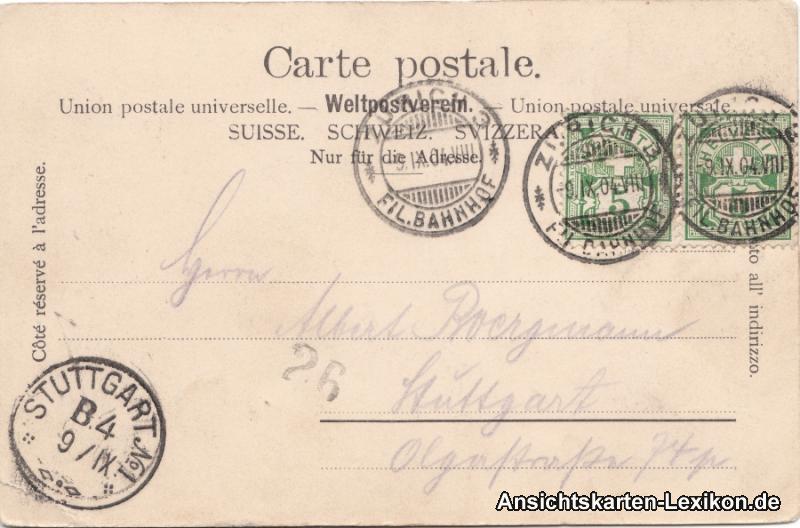 Carte postale.
Union postale universelle. — Weltpostverein. — Unione postale universale.
SUISSE. SCHWEIZ. SVIZZERA.
Nur für die Adresse.
Côté réservé à l'adresse.
to all' indirizzo.
ZÜRICH 3
9.IX.04.VIII
FIL. BAHNHOF
ZÜRICH 3
9.IX.04.VIII
FIL. BAHNHOF
5
9.IX.04.VIII
FIL. BAHNHOF
Herrn
Albert
Stuttgart
Olgastraße
26
STUTTGART. No 1.
B.4
9/IX
Ansichtskarten-Lexikon.de